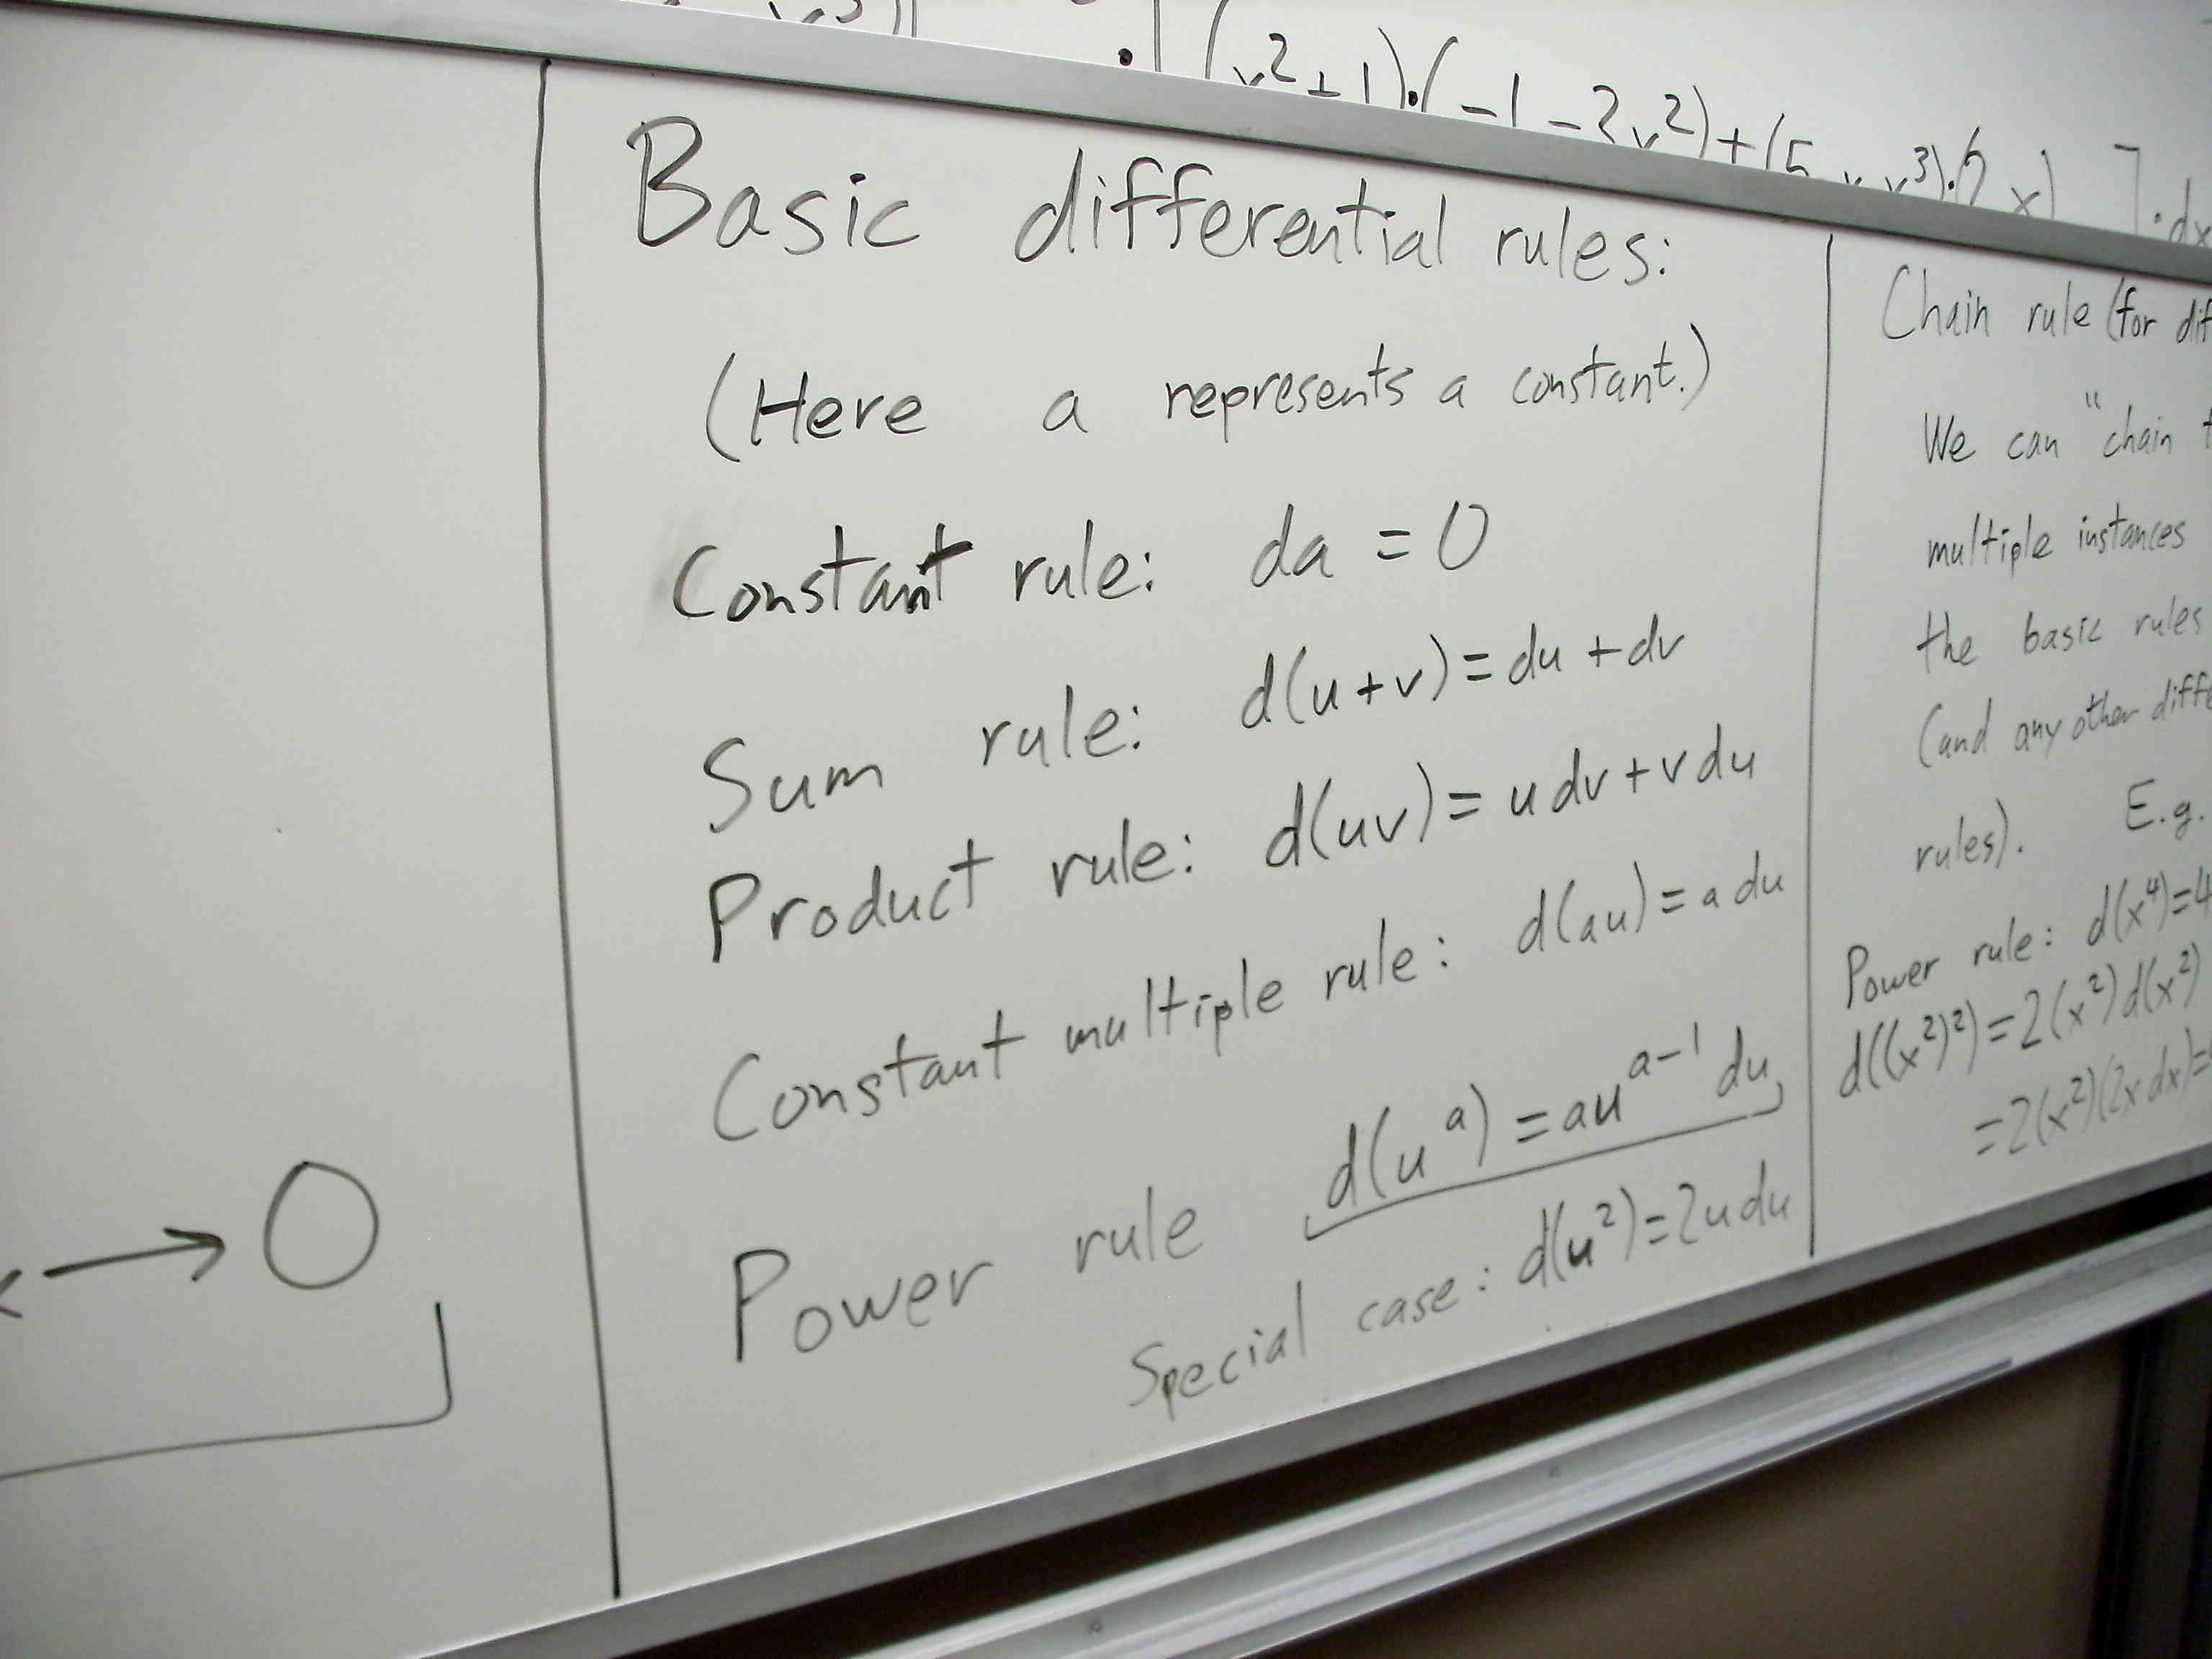 (x²+1)·(-1-3x²)+(5 x x³)·2x) ]·dx
x → 0
Basic differential rules:
(Here a represents a constant.)
Constant rule: da = 0
Sum rule: d(u+v)=du+dv
Product rule: d(uv)=u dv+v du
Constant multiple rule: d(au)=a du
Power rule d(uᵃ)=auᵃ⁻¹ du
Special case: d(u²)=2u du
Chain rule (for
We can "chain
multiple instances
the basic rules
(and any other
rules). E.g.
Power rule: d(x⁴)=4
d((x²)²)=2(x²)d(x²)
=2(x²)(2x dx)=